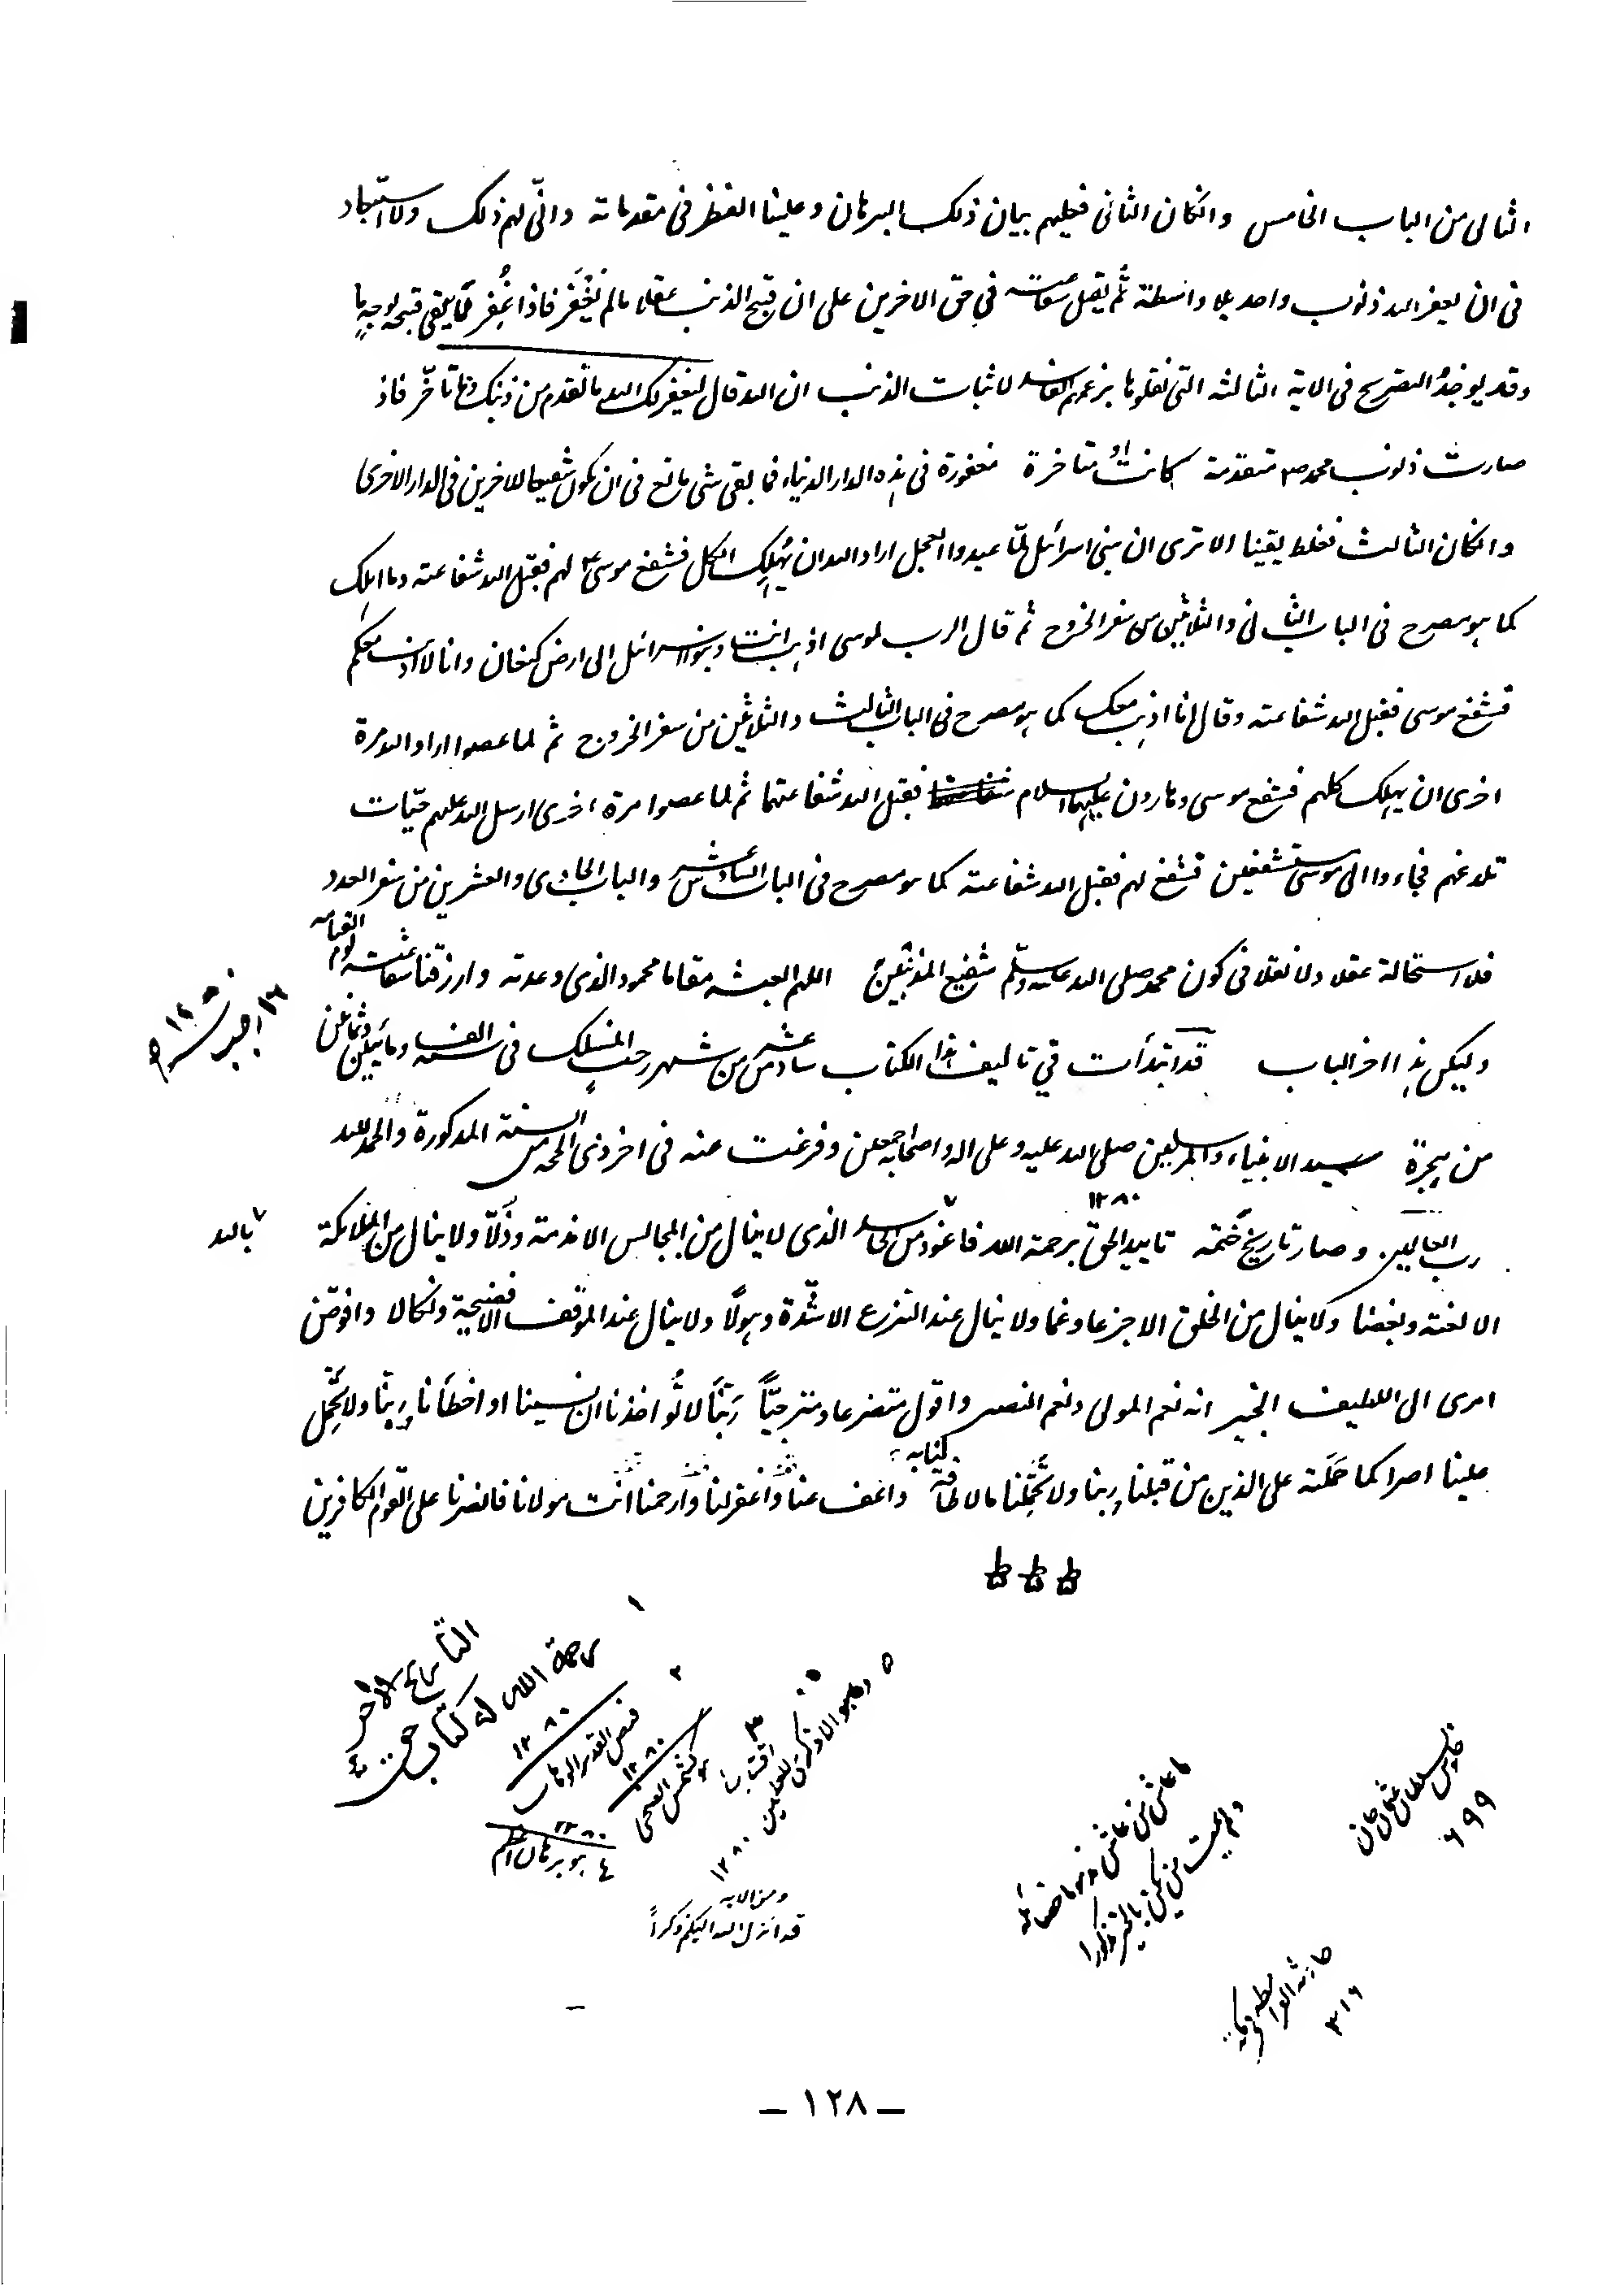 الثالى من الباب الخامس وانكان الثانى فعليهم بيان ذلك البرهان وعلينا النظر فى مقدماته وانّى لهم ذلك ولا استبعاد
فى ان يغفر الله ذنوب واحد بلا واسطة ثُم يقبل شفاعته في حق الاخرين على ان قبح الذنب عقلا مالم يُغْفَر فاذا غُفِر فما يبقى قبحه بوجهٍ ما
وقد يوجدُ التصريح فى الاية الثالثه التى نقلوها بزعمهم الفاسد لاثبات الذنب ان الله قال ليغفر لك الله ماتقدم من ذنبك وما تاخّر فاذا
صارت ذنوب محمد صم متقدمة كانت او متاخرة مغفورة فى هذه الدار الدنيا، فما بقى شى مانع فى ان يكون شفيعا للاخرين فى الدار الاخرى
وانكان الثالث فغلط يقينا الا ترى ان بنى اسرائيل لمّا عبدوا العجل اراد الله ان يُهلِك الكل فشفع موسى ع لهم فقبل الله شفاعته وما اهلك
كما هو مصرح فى الباب الثانى والثلاثين من سفر الخروج ثم قال الرب لموسى اذهب انت وبنو اسرائيل الى ارض كنعان وانا لا اذهب معكم
فشفع موسى فقبل الله شفاعته وقال انا اذهب معك كما هو مصرح فى الباب الثالث والثلاثين من سفر الخروج ثم لما عصوا اراد الله مرة
اخرى ان يهلك كلهم فشفع موسى وهارون عليهما السلام فقبل الله شفاعتهما ثم لما عصوا مرة اخرى ارسل الله عليهم حيّات
تلدغهم فجاءوا الى موسى مستشفعين فشفع لهم فقبل الله شفاعته كما هو مصرح فى الباب السادس عشر والباب الحادى والعشرين من سفر العدد
فلا استحالة عقلا ولا نقلا فى كون محمد صلى الله عليه وسلم شفيع المذنبين اللهم ابعثه مقاما محمود الذى وعدته وارزقنا شفاعته يوم القيامه
وليكن هذا اخر الباب قد ابتدأت في تاليف هذا الكتاب سادس عشر من شهر رجب المنسلك فى سنة الف ومائتين وثمانين
من هجرة سيد الانبياء والمرسلين صلى الله عليه وعلى اله واصحابه اجمعين وفرغت عنه فى اخر ذى الحجه من السنة المذكورة والحمد لله
رب العالمين وصار تاريخ ختمه تاييد الحق برحمة الله ١٢٨٠ فاعوذ من الحاسد الذى لاينال من المجالس الا مذمة وذُلّا ولاينال من الملائكة
بالله
الا لعنة وبغضا ولاينال من الخلق الا جزعا وغما ولاينال عند النزع الا شدّة وهولًا ولاينال عند الموقف الا فضيحة ونكالا وافوض
امرى الى اللطيف الخبير انه نعم المولى ونعم النصير واقول متضرعا ومترجيّاً رَبّنا لاتُواخذنا ان نسينا او اخطأنا ربنا ولاتحمل
علينا اصرا كما حمَلته على الذين من قبلنا ربنا ولا تُحمّلنا مالا طاقة لنا به واعف عنا واغفرلنا وارحمنا انت مولانا فانصرنا على القوم الكافرين
ط ط ط
١
رحمة الله
١٢٨٠
٢
فيض القدير الوهاب
١٢٨٠
٣
١٢٨٠
٤ هو برهان اعظم
٥ وما هو الا ذكرى للعالمين
١٢٨٠
ومن الايه
قد انزل الله اليكم ذكراً
ما عاش من عاش
ولم يمت من يكن بالخير مذكورا
٦٩٩
٣١٦
— ١٢٨ —